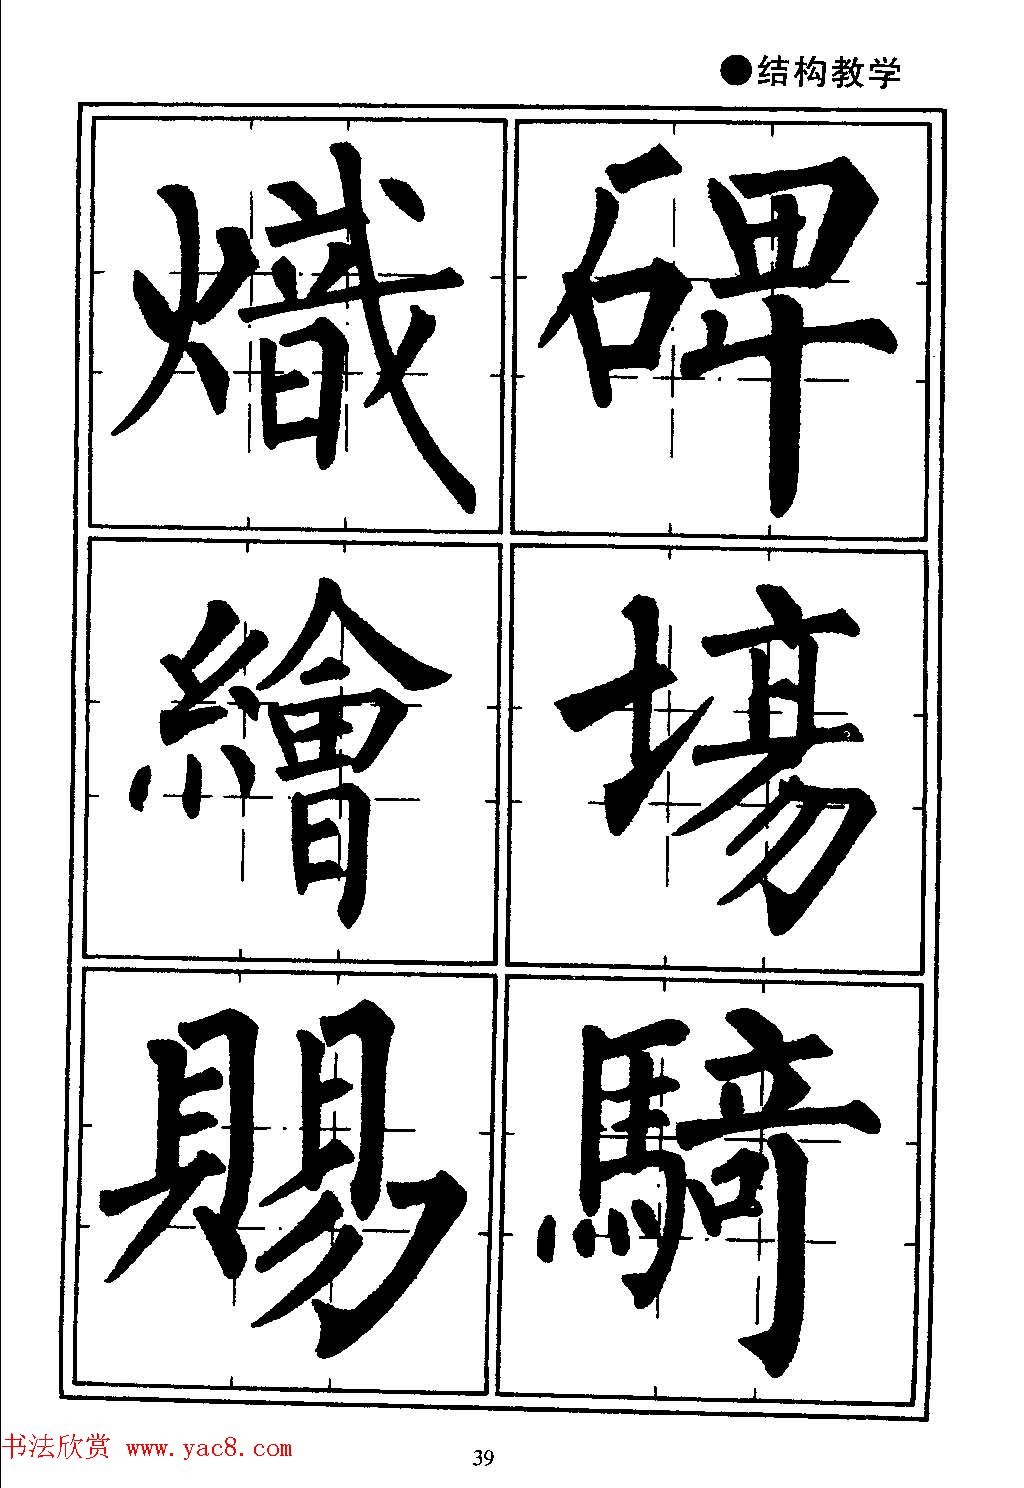 ●结构教学
碑塲騎
熾繪賜
书法欣赏 www.yac8.com
39